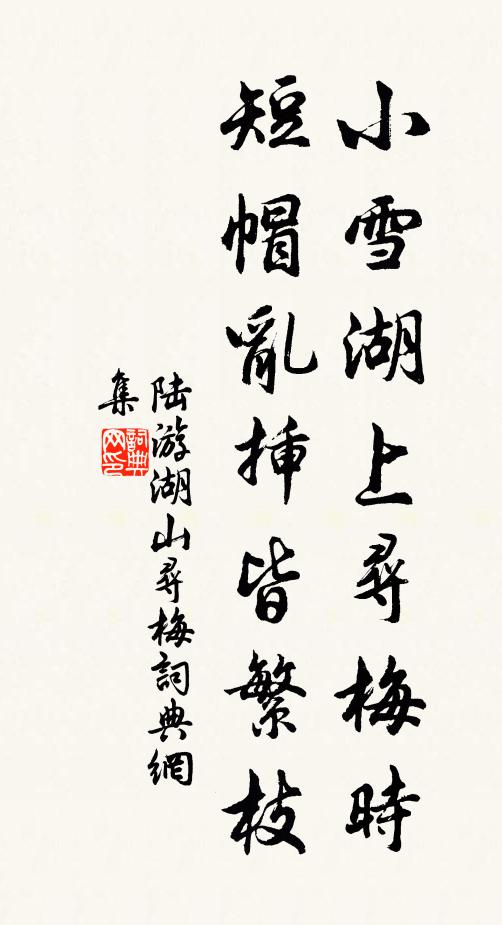 小雪湖上尋梅時
短帽亂插皆繁枝
陸游湖山尋梅詞典網
集
詞典网印